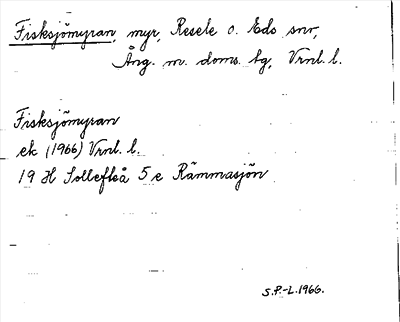 Fisksjömyran, myr, Resele o. Eds snr,
Ång. m. doms. tg, Vrnl. l.
Fisksjömyran
ek (1966) Vrnl. l.
19 H Sollefteå 5 e Rämmasjön
S.P.-L. 1966.